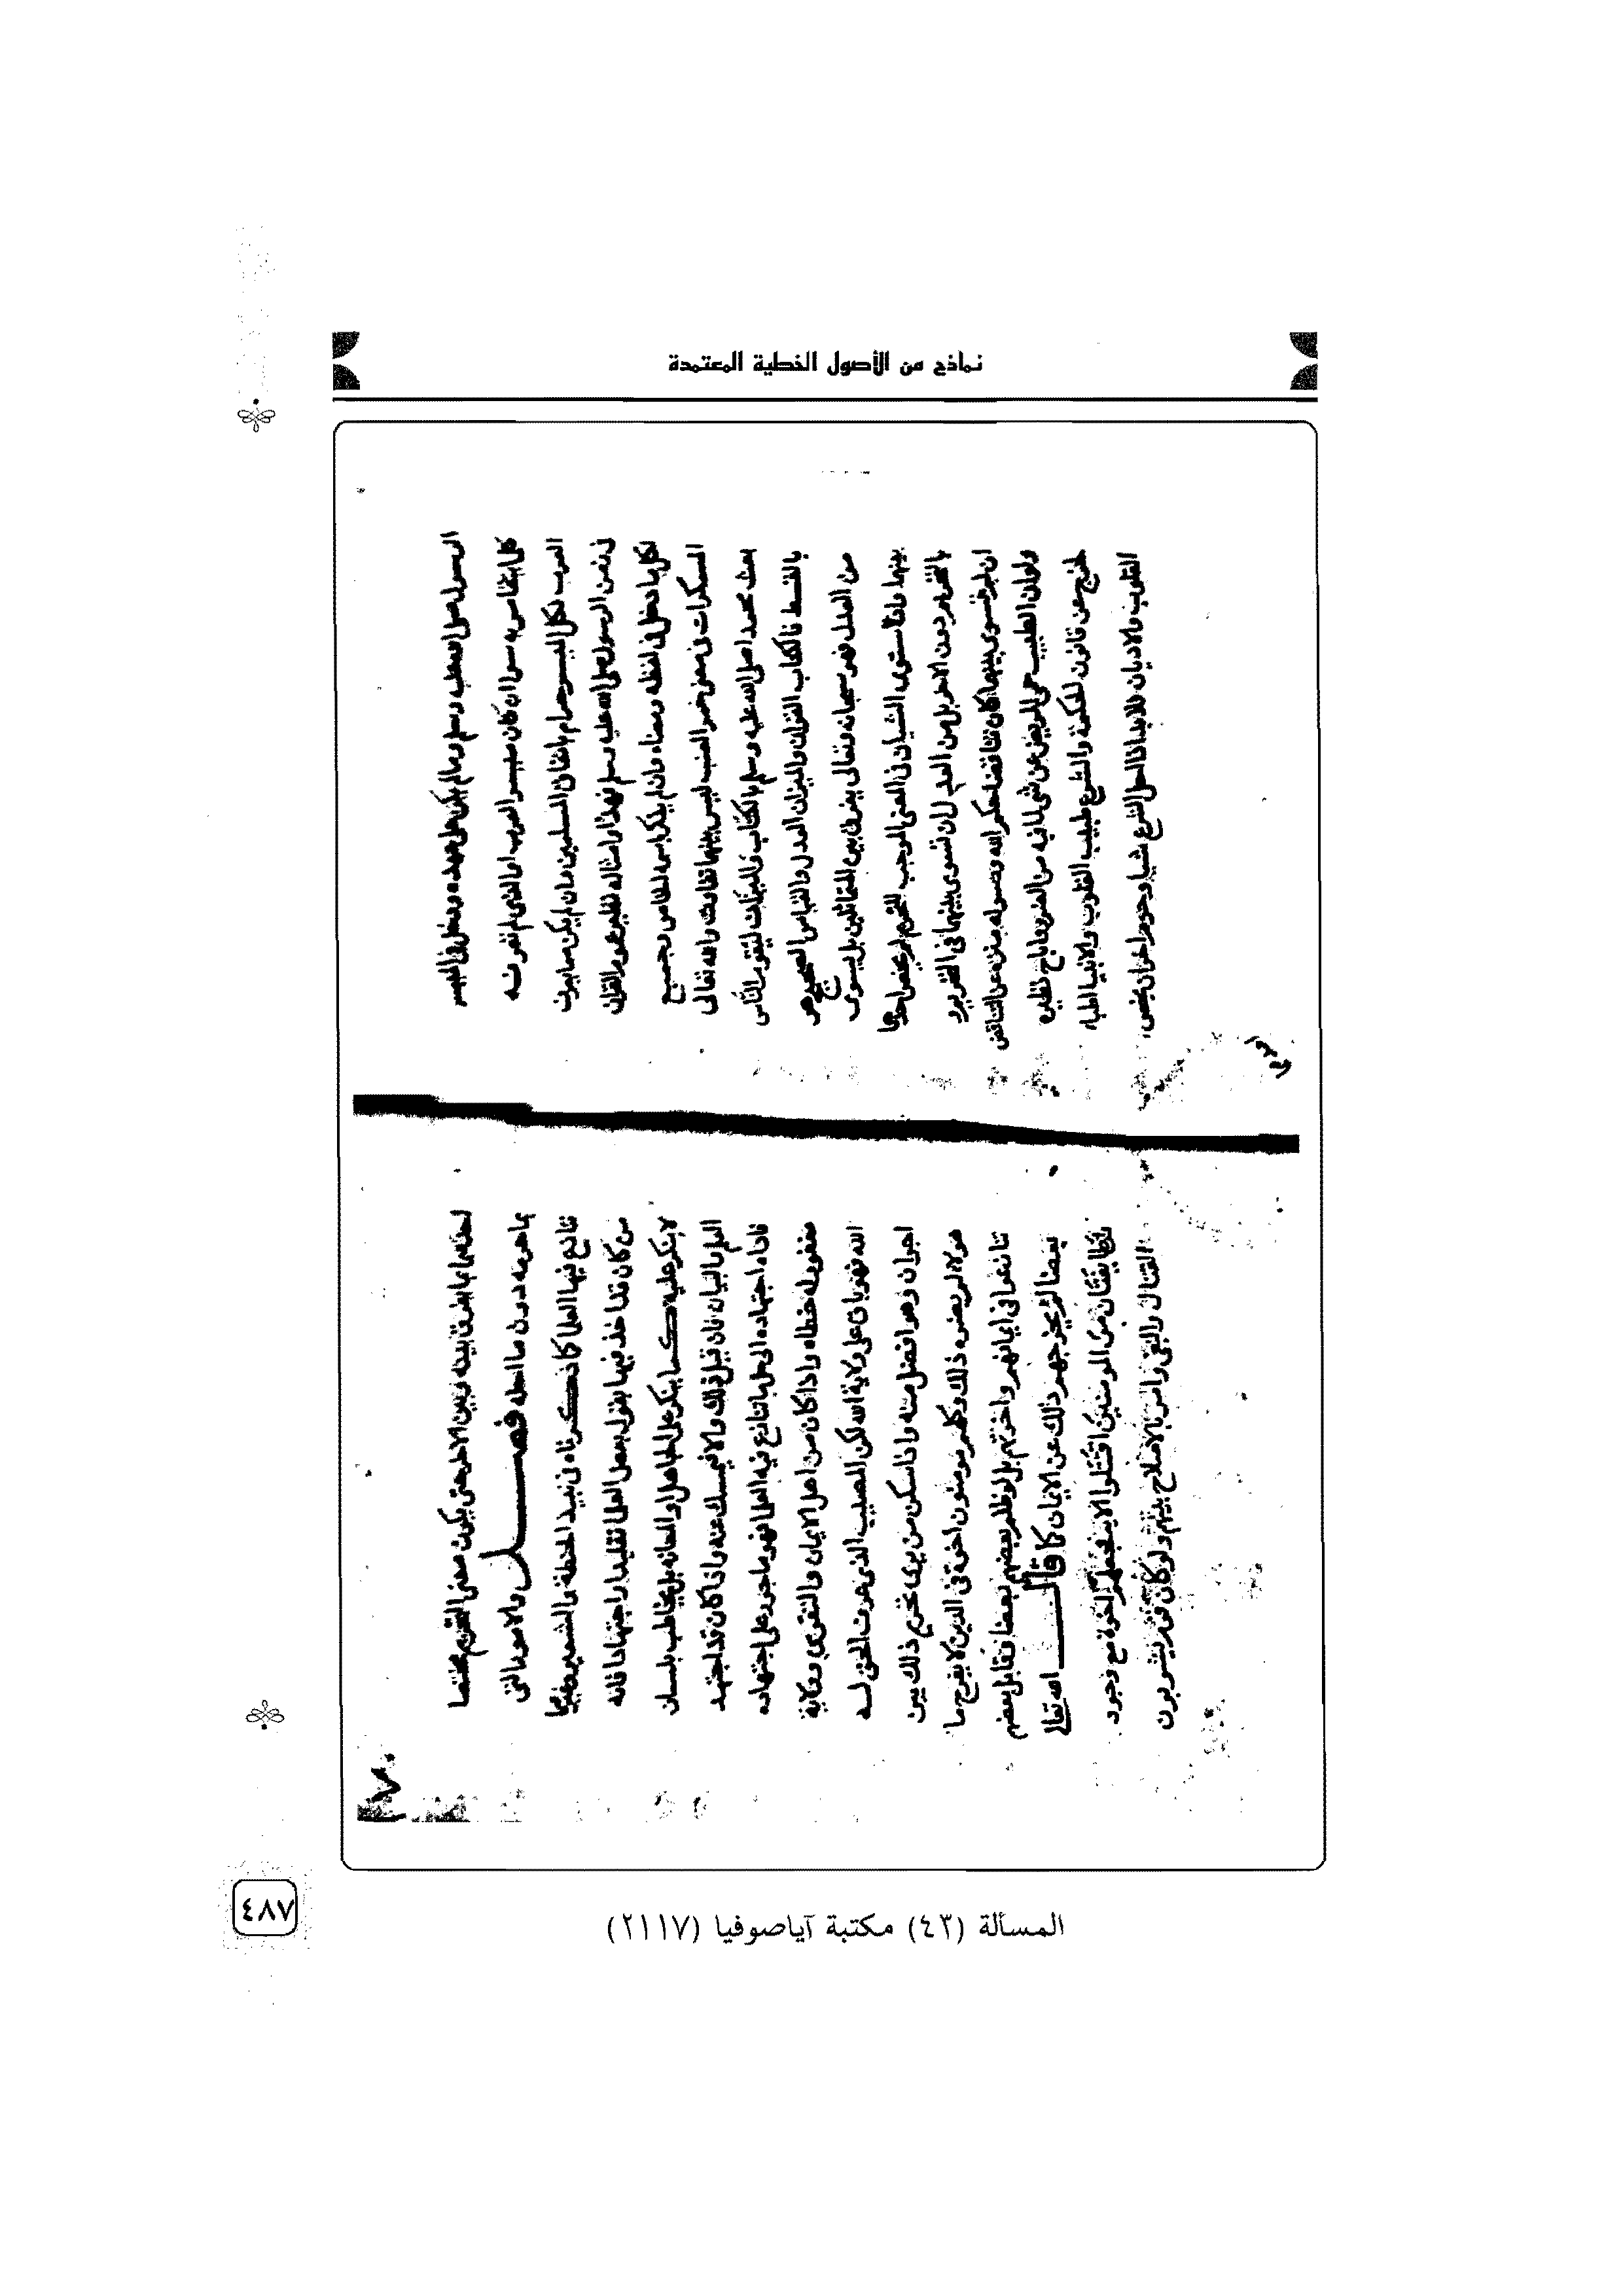 نماذج من الأصول الخطية المعتمدة
الرسول صلى الله عليه وسلم ومالم يكن على عهده ودخل في الميسر
كل ما يتقامر به سوا كان ميسر العرب او الذي لم تعرفه
العرب لكل الميسر حرام باتفاق المسلمين وان لم يكن ما يعرف
في زمن الرسول صلى الله عليه وسلم فهذا وامثاله نظير عموم القران
لكل ما دخل في لفظه ومعناه وان لم يذكر باسمه الخاص وجميع
المسكرات في معنى خمر العنب ليس بينهما تفاوت والله تعالى
بعث محمدا صلى الله عليه وسلم بالكتاب والميزان ليقوم الناس
بالقسط فالكتاب القران والميزان العدل والقياس الصحيح هو
من العدل فهو سبحانه وتعالى يفرق بين المتماثلين بل يسوى
بينهما واذا استوى الشيان في المعنى الموجب للتحريم لم يخص احدهما
بالتحريم دون الاخر بل من العدل ان تسوى بينهما في التحريم و
ان لم نسوى بينهما كان تناقضا وحكم الله ورسوله منزه عن التناقض
ولو ان الطبيب حمى المريض عن شي لما فيه من الضرر واباح نظيره
لخرج عن قانون الحكمة والشرع طبيب القلوب والانبيا اطباء
القلوب والاديان فلابد اذا احل الشرع شيا وحرم اخر ان يخص
احدهما بما يفرق بينه وبين الاخر حتى يكون معنى التحريم مختصا
بما حرمه دون ما احله فصل والامور التي
تنازع فيها العلما كما ذكرناه في نبيذ الحنطة والشعير وغيرها
من كان قد اخذ فيها بقول بعض العلما تقليدا او اجتهادا فانه
لا ينكر عليه كما ينكر على الجاهل او المعاند بل يخاطب بلسان
العلم والبيان فان قبل ذلك والا فيمسك عنه واذا كان قد اجتهد
فاداه اجتهاده الى حل ما تنازع فيه العلما فهو ماجور على اجتهاده
مغفور له خطاه واذا كان من اهل الايمان والتقوى وكاية
الله فهو باق على ولاية الله لكن المصيب الذي عرف الحق له
اجران وهو افضل منه واذا سكن من يرى تحريم ذلك بين
هولاء لم يضره ذلك وكلهم مومنون اخوة في الدين لا يفرح ما
تنازعوا في ايمانهم واخوتهم بل لو ظلم بعضهم بعضا فقابل بعضهم
بعضا لم يخرجهم ذلك عن الايمان كما قال الله تعالى
وان طايفتان من المومنين اقتتلوا الاية فجعلهم اخوة مع وجود
القتال والبغي وامر بالاصلاح بينهم ولو كان قوم يشربون
٧٠
المسألة (٤٣) مكتبة آياصوفيا (٢١١٧)
٤٨٧